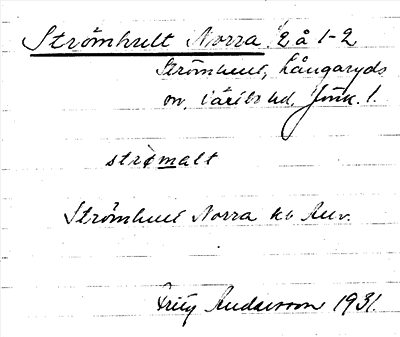 Strömhult Norra 2 å 1-2
Strömhult, Långaryds
sn, Västbo hd, Jönk. l.
strømalt
Strömhult Norra kb Auv.
Fritz Andersson 1931.